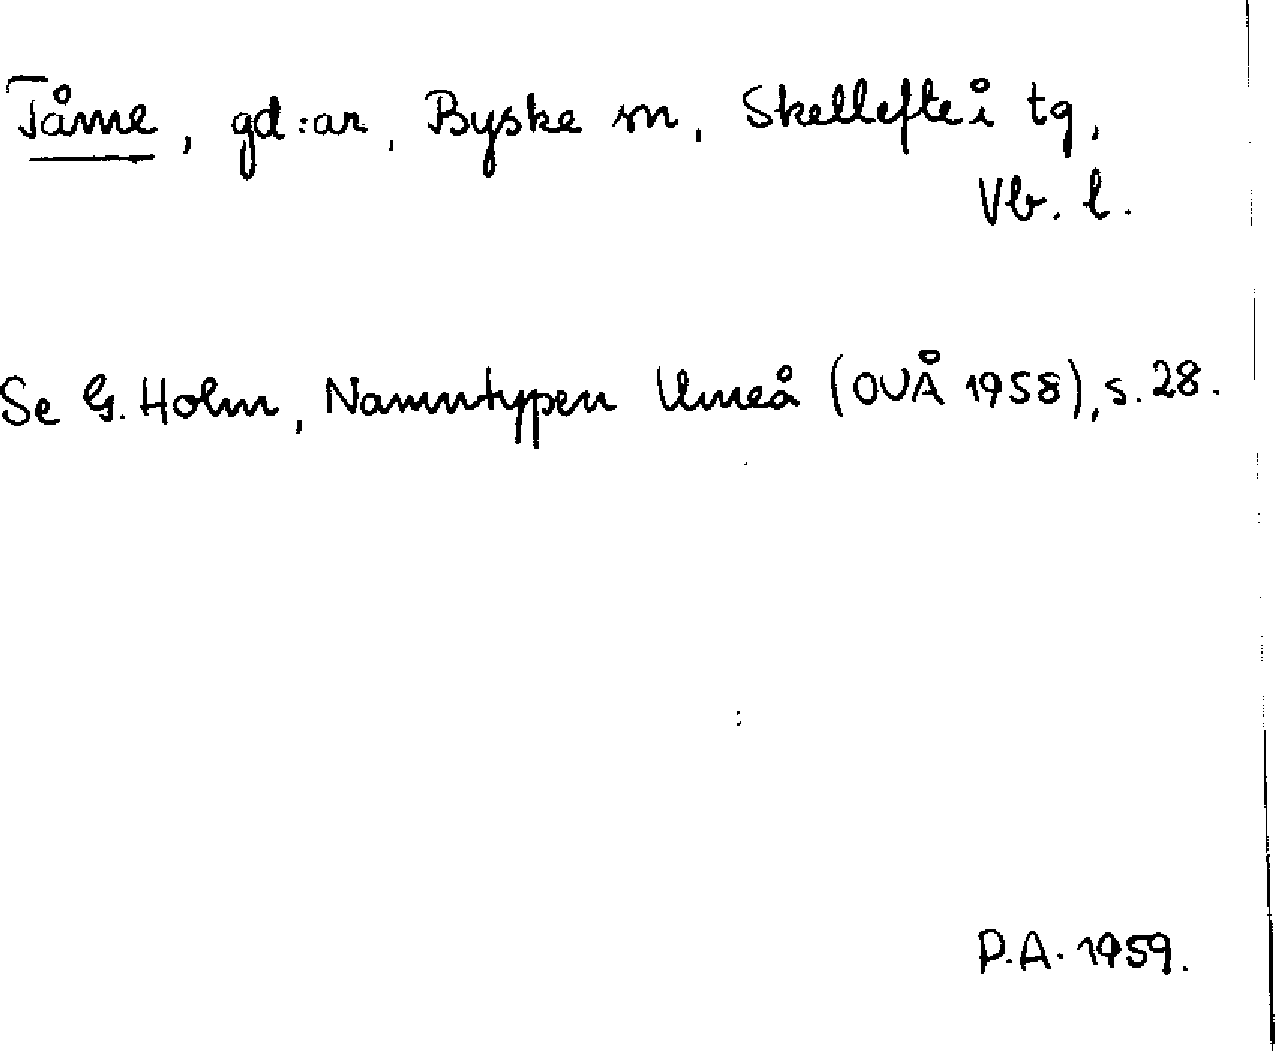 Tåme, gd:ar, Byske sn, Skellefteå tg,
Vb. l.
Se G. Holm, Namntypen Umeå (OUÅ 1958), s. 28.
P.A. 1959.